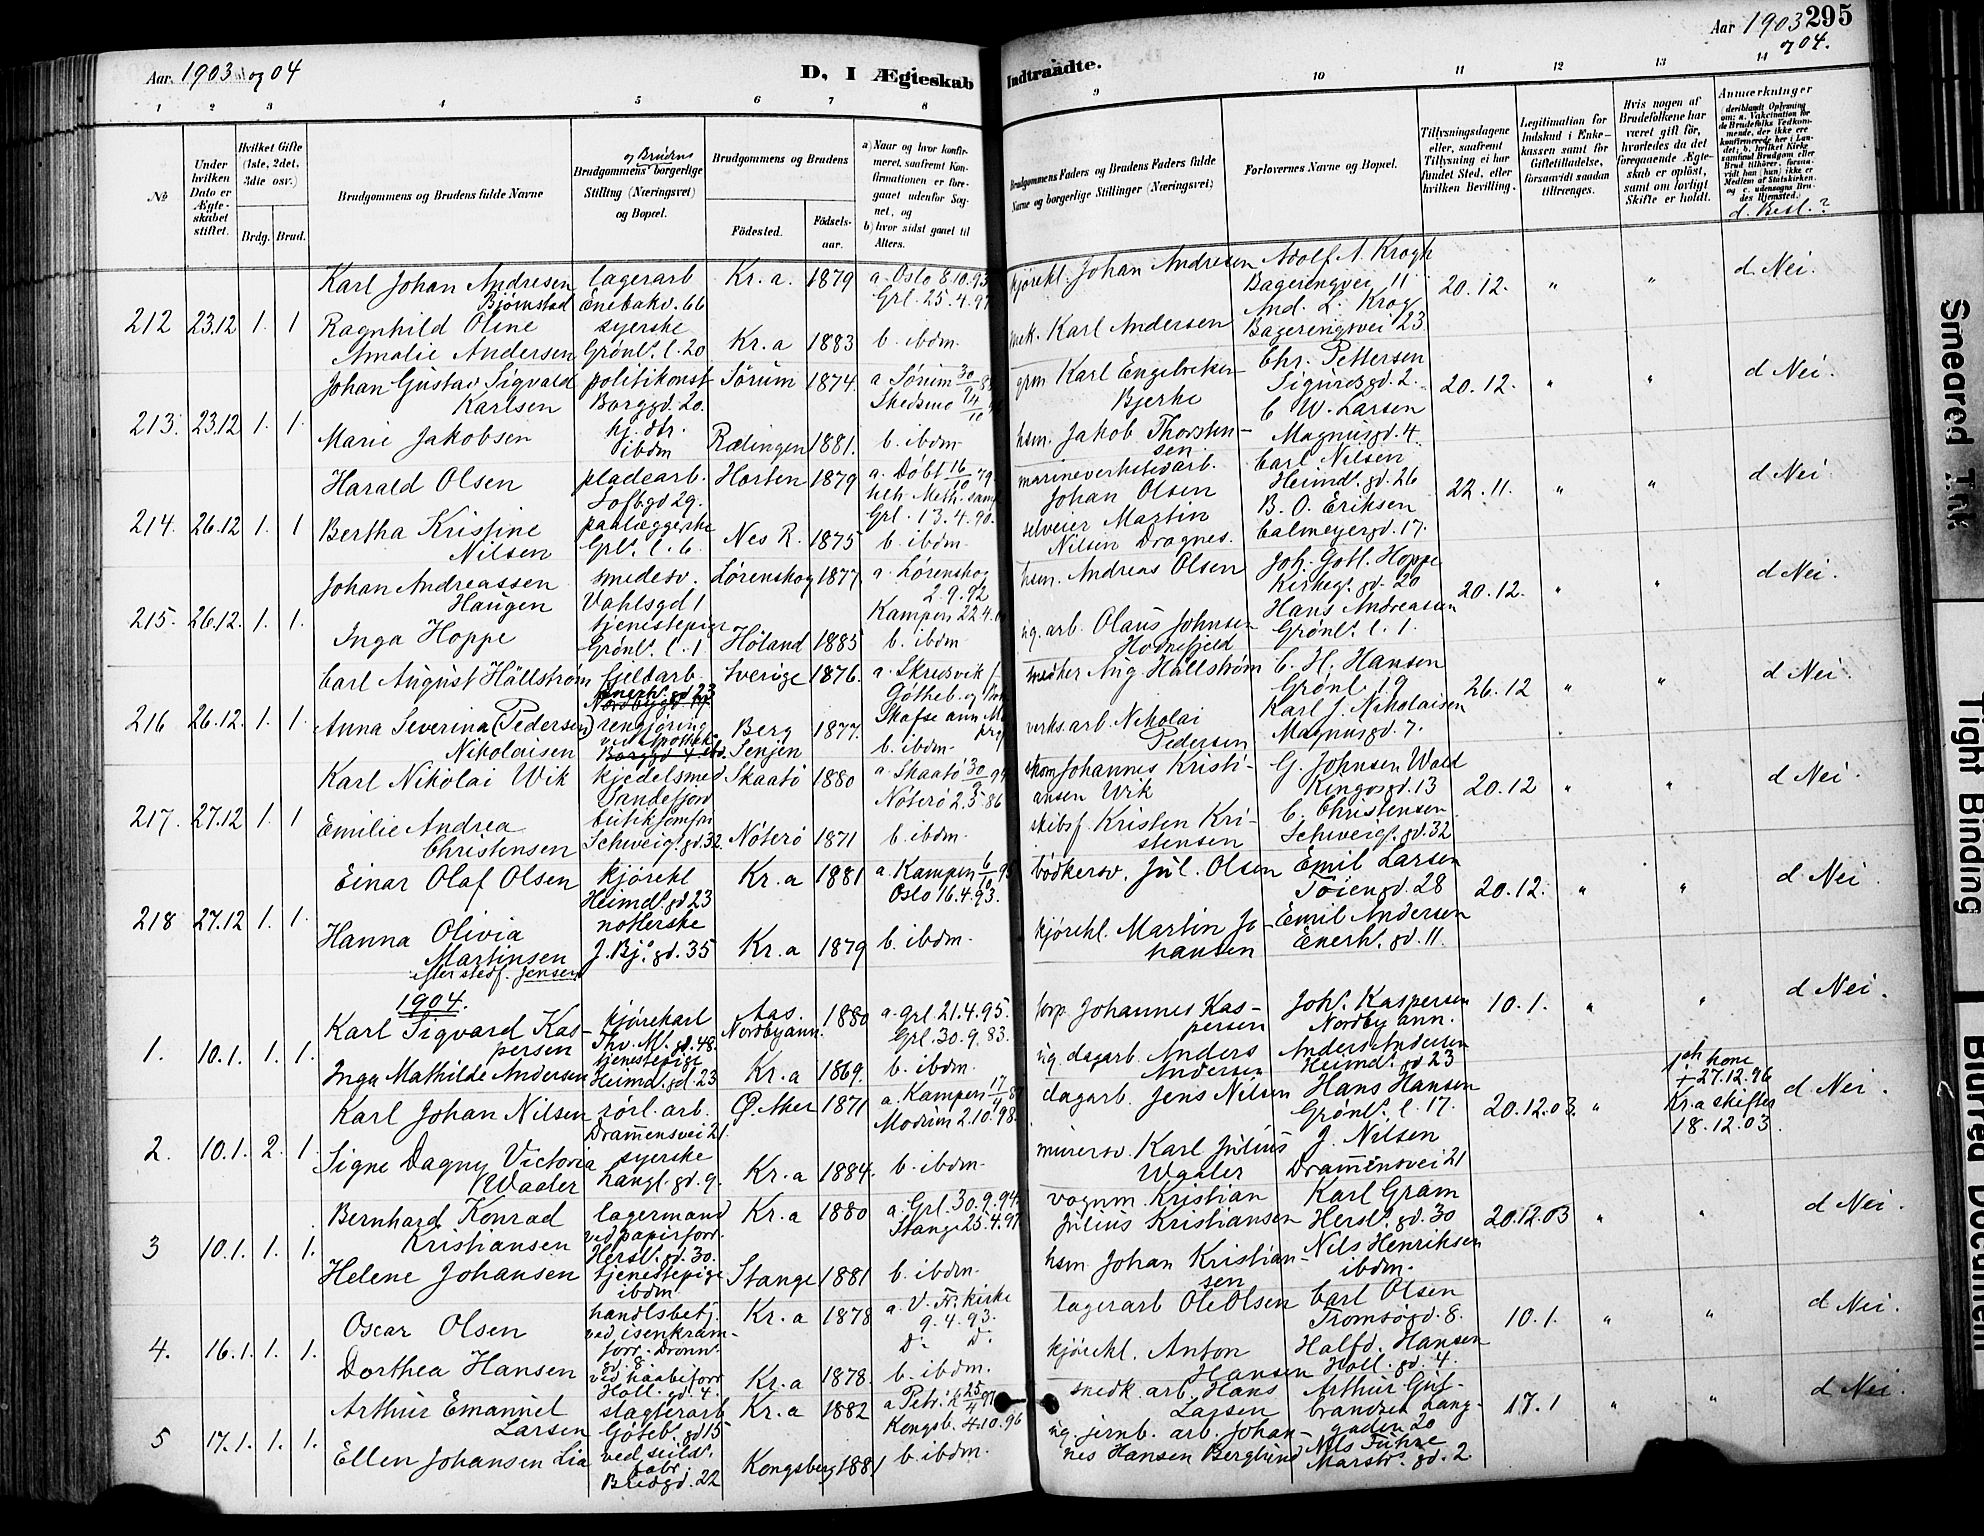 Aar. 1903 og 04
D, I Ægteskab
Indtraadte.
Aar 1903 295
og 04.
1 2 3 4 5 6 7 8
9 10 11 12 13 14
№
Under hvilken Dato er Ægteskabet stiftet.
Hvilket Gifte (1ste, 2det, 3die osv.)
Brdg. Brud.
Brudgommens og Brudens fulde Navne
og Brudens
Brudgommens borgerlige Stilling (Næringsvei) og Bopæl.
Brudgommens og Brudens
Födested.
Födsels-aar.
a) Naar og hvor konfirmeret, saafremt Konfirmationen er foregaaet udenfor Sognet, og
b) hvor sidst gaaet til Alters.
Brudgommens Faders og Brudens Faders fulde Navne og borgerlige Stillinger (Næringsvei)
Forlovernes Navne og Bopæl.
Tillysningsdagene eller, saafremt Tillysning ei har fundet Sted, efter hvilken Bevilling.
Legitimation for Indskud i Enkekassen samt for Giftetilladelse, forsaavidt saadan tiltrænges.
Hvis nogen af Brudefolkene har været gift før, hvorledes da det foregaaende Ægteskab er opløst, samt om lovligt Skifte er holdt.
Anmærkninger
d. Best.?
212 23.12 1. 1
Karl Johan Andresen Bjørnstad lagerarb Enebakv. 66 Kr.a. 1879 a. Oslo 8.10.93 Grl. 25.4.97
kjørekl. Johan Andresen Adolf A. Krogh Bageringvei 11 20.12. " " d. Nei.
Ragnhild Oline Amalie Andersen syerske Grønl. l. 20 Kr.a 1883 b. ibdm.
mek. Karl Andersen And. L. Krog Bageringsvei 23
213. 23.12 1. 1.
Johan Gustav Sigvald Karlsen politikonst Borggd. 20. Sørum 1874. a Sørum 30/ Skedsmo
grm Karl Engebretsen Bjerke Chr. Pettersen Sigurdsgd. 2. 20.12. " " d Nei.
Marie Jakobsen hj. dtr. ibdm Rælingen 1881. b. ibdm
hsm. Jakob Thorstensen C W. Larsen Magnusgd. 4.
214. 26.12 1. 1
Harald Olsen pladearb. Tofbgd 29. Horten 1879 a. Døbt 16/10 79. Grl. 13.4.90.
marineverkstedarb. Johan Olsen Carl Nilsen Heimd. gd. 26 22.11. " " d Nei
Bertha Kristine Nilsen paalæggerske Grl. l. 6. Nes R. 1875 b. ibdm.
selveier Martin Nilsen Dragnes. B. O. Eriksen Calmeyergd. 17.
215. 26.12. 1. 1.
Johan Andreassen Haugen smedesv. Vahlsgd 1 Lørenskog 1877. a. Lørenskog 2.9.92 Kampen 22.4.
hsm. Andreas Olsen Joh. Gotl. Hoppe Kirkeg. gd. 20 20.12. " " d Nei.
Inga Hoppe tjenestepige Grønl. l. 1 Höland 1885 b. ibdm
ug. arb. Olaus Johnsen Hans Andreasen Grønl. l. 1.
216 26.12. 1. 1.
Carl August Hällström fjeldarb. Enerh. gd 23 Sverige 1876. a. Skredsvik
Aug Hällström C. H. Hansen Grönl. 19 26.12 " " d Nei.
Anna Severina (Pedersen) Nikolaisen rengjøring Berg Senjen 1877. b. ibdm.
verks. arb. Nikolai Pedersen Karl J. Nikolaisen Magnusgd. 7.
217. 27.12 1. 1
Karl Nikolai Wik kjedelsmed Sandefjord Skaatö 1880 a. Skaatö 30/ Nøterö 2.5.86
Johannes Kristiansen Wik G. Johnsen Wald Kingosgd. 13 20.12 " " d Nei.
Emilie Andrea Christensen butikjomfru Schweig. gd. 32 Nöterö 1871 b. ibdm.
skibsf. Kristen Kristensen C. Christensen Schweig. gd. 32
218 27.12 1. 1.
Einar Olaf Olsen kjørekl Heimd. gd 23 Kr.a 1881 a. Kampen 6/10 95 Oslo 16.4.93.
bödkersv. Jul. Olsen Emil Larsen Töiengd. 28 20.12. " " d Nei.
Hanna Olivia Martinsen efter stedf. Jensen notterske J. Bj. gd. 35 Kr.a 1879 b. ibdm.
kjørekl. Martin Johansen Emil Andersen Enerh. gd. 11.
1904.
1. 10.1. 1. 1.
Karl Sigvard Kaspersen kjørekarl Thv. M. gd. 48. Aas. Nordby ann. 1880 a. grl. 21.4.95. Grl. 30.9.83.
Johannes Kaspersen Joh. Kaspersen Nordby ann. 10.1. " " d Nei.
Inga Mathilde Andersen tjenestepige Heimd. gd. 23 Kr.a 1869. b. ibdm.
ug. dagarb. Anders Andersen Anders Andersen Heimd. gd 23
2. 10.1. 2. 1.
Karl Johan Nilsen sørl. arb. Drammensvei 21. Ø. Aker 1871 a. Kampen 17/ Modum 2.10.98.
dagarb. Jens Nilsen Hans Hansen Grønl. l. 17. 20.12.03. " 1ste kone † 27.12.96 Kr.a skiftes 18.12.03. d Nei.
Signe Dagny Victoria Waaler syerske hangl. gd. 9. Kr.a 1884. b. ibdm.
murersv. Karl Julius Waaler J. Nilsen Drammensvei 21
3 10.1. 1. 1.
Bernhard Konrad Kristiansen lagermand ved papirforr. Hersl. gd. 30. Kr.a 1880 a. Grl. 30.9.94 Stange 25.4.97
vognm. Kristian Julius Kristiansen Karl Gram Hersl. gd. 30 20.12.03 " " d Nei.
Helene Johansen tjenestepige ibdm Stange 1881 b. ibdm.
hsm. Johan Kristiansen Nils Henriksen ibdm.
4. 16.1. 1. 1.
Oscar Olsen handlsbetj. ved isenkramforr. Dronn. gd. 8. Kr.a 1878 a. V. Fr. kirke 9.4.93. D. D.
lagerarb Ole Olsen Carl Olsen Tromsögd. 8. 10.1. " " d Nei.
Dorthea Hansen ved kaabeforr Holl. gd. 4. Kr.a 1878. b. ibdm.
kjørekl. Anton Hansen Halfd. Hansen Holl. gd. 4.
5 17.1. 1. 1.
Arthur Emanuel Larsen slagterarb Göteb. gd 15 Kr.a 1882 a Petr. k 25/4 97 Kongsb. 4.10.96
snedk. arb. Hans Larsen Arthur Gulbrandsen Langgaden 20 17.1 " " d Nei.
Ellen Johansen Lia ved seild. fabr. Bredgd. 22 Kongsberg 1881 b. ibdm.
ug. jernb. arb. Johannes Hansen Berglund Nils Fuhre Marstr. gd. 2
Smeared Ink
Tight Binding
Blurred Document